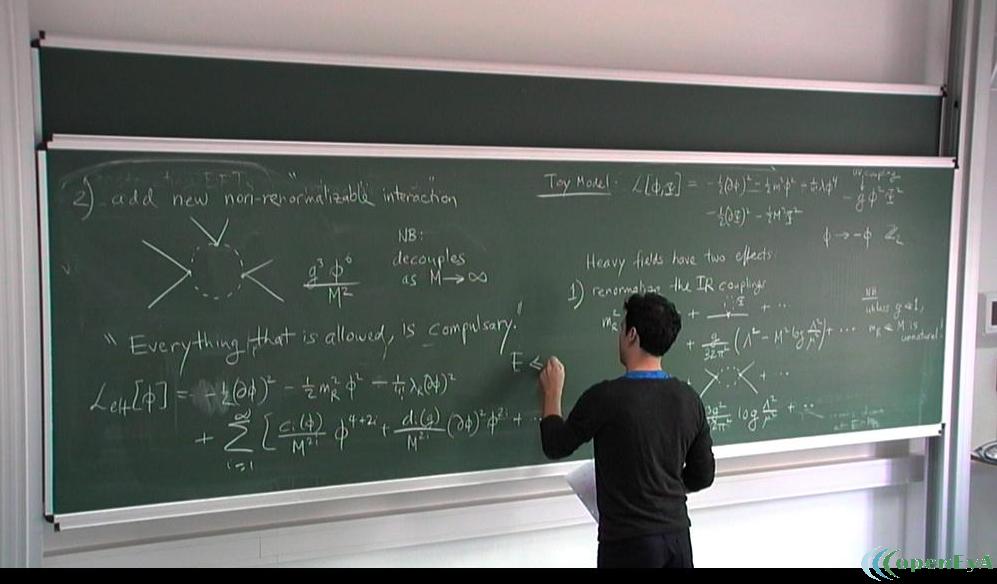 2) add new non-renormalizable interaction
g³ φ⁶ / M²
NB:
decouples
as M → ∞
"Everything that is allowed, is compulsary."
L_eff[φ] = -½(∂φ)² - ½ m_R² φ² - 1/4! λ_R (∂φ)²
+ Σ_{i=1}^∞ [ c_i(g)/M^{2i} φ^{4+2i} + d_i(g)/M^{2i} (∂φ)² φ^{2i} + ...
E <
Toy Model: L[φ,Ψ] = -½(∂φ)² - ½m²φ² - 1/4! λφ⁴
-½(∂Ψ)² - ½M²Ψ²
UV coupling
- g φ²Ψ²
φ → -φ Z₂
Heavy fields have two effects:
1) renormalize the IR couplings
m_R²
+ ...
+ g/32π² (Λ² - M² log Λ²/μ²) + ...
NB
unless g≪1,
m_R ≪ M is
unnatural!
log Λ²/μ² + ...
openEyA